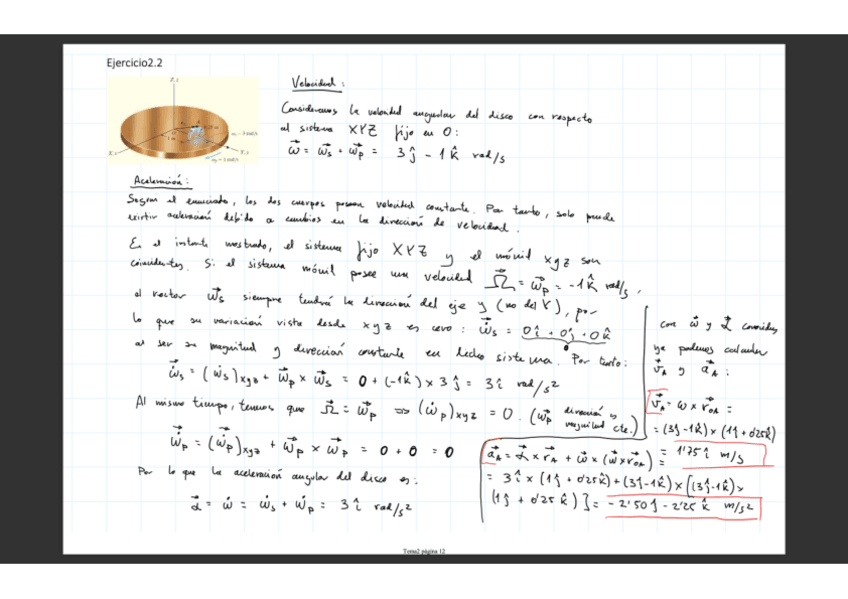 Ejercicio2.2
Velocidad:
Consideremos la velocidad angular del disco con respecto
al sistema XYZ fijo en O:
ω⃗ = ω⃗s + ω⃗p = 3ĵ - 1k̂ rad/s
Aceleración:
Según el enunciado, los dos cuerpos poseen velocidad constante. Por tanto, solo puede
existir aceleración debido a cambios en la dirección de velocidad.
En el instante mostrado, el sistema fijo XYZ y el móvil xyz son
coincidentes. Si el sistema móvil posee una velocidad Ω⃗ = ω⃗p = -1k̂ rad/s,
el vector ω⃗s siempre tendrá la dirección del eje y (no del Y), por
lo que su variación vista desde xyz es cero: ω̇⃗s = 0î + 0ĵ + 0k̂
0
al ser su magnitud y dirección constante en dicho sistema. Por tanto:
ω̇⃗s = (ω̇⃗s)xyz + ω⃗p × ω⃗s = 0 + (-1k̂) × 3ĵ = 3î rad/s²
Al mismo tiempo, tenemos que Ω⃗ = ω⃗p ⇒ (ω̇p)xyz = 0. (ω⃗p dirección y
magnitud cte.)
ω̇⃗p = (ω̇⃗p)xyz + ω⃗p × ω⃗p = 0 + 0 = 0
Por lo que la aceleración angular del disco es:
α⃗ = ω̇ = ω̇s + ω̇p = 3î rad/s²
con ω⃗ y α⃗ conocidos
ya podemos calcular
v⃗A y a⃗A:
v⃗A = ω × r⃗OA =
= (3ĵ-1k̂) × (1ĵ + 0'25k̂)
= 1'75î m/s
a⃗A = α⃗ × r⃗A + ω⃗ × (ω⃗ × r⃗OA) =
= 3î × (1ĵ + 0'25k̂) + (3ĵ-1k̂) × [(3ĵ-1k̂) ×
(1ĵ + 0'25k̂)] = -2'50ĵ - 2'25k̂ m/s²
Tema2 página 12